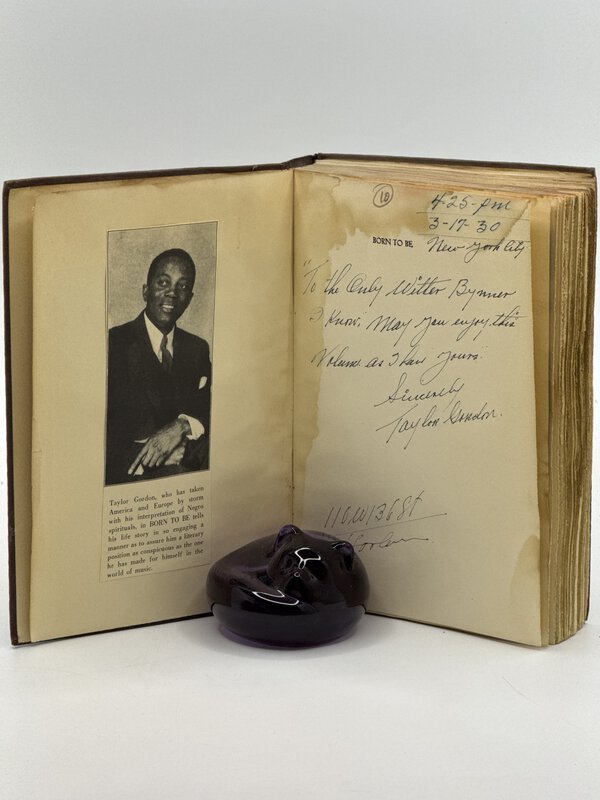 Taylor Gordon, who has taken
America and Europe by storm
with his interpretation of Negro
spirituals, in BORN TO BE tells
his life story in so engaging a
manner as to assure him a literary
position as conspicuous as the one
he has made for himself in the
world of music.
10
4-25-Am
3-17-30
BORN TO BE New York City
"To the Only Witter Bynner
I Know. May you enjoy this
Volume as I have yours.
Sincerely
Taylor Gordon.
110 W 136 St